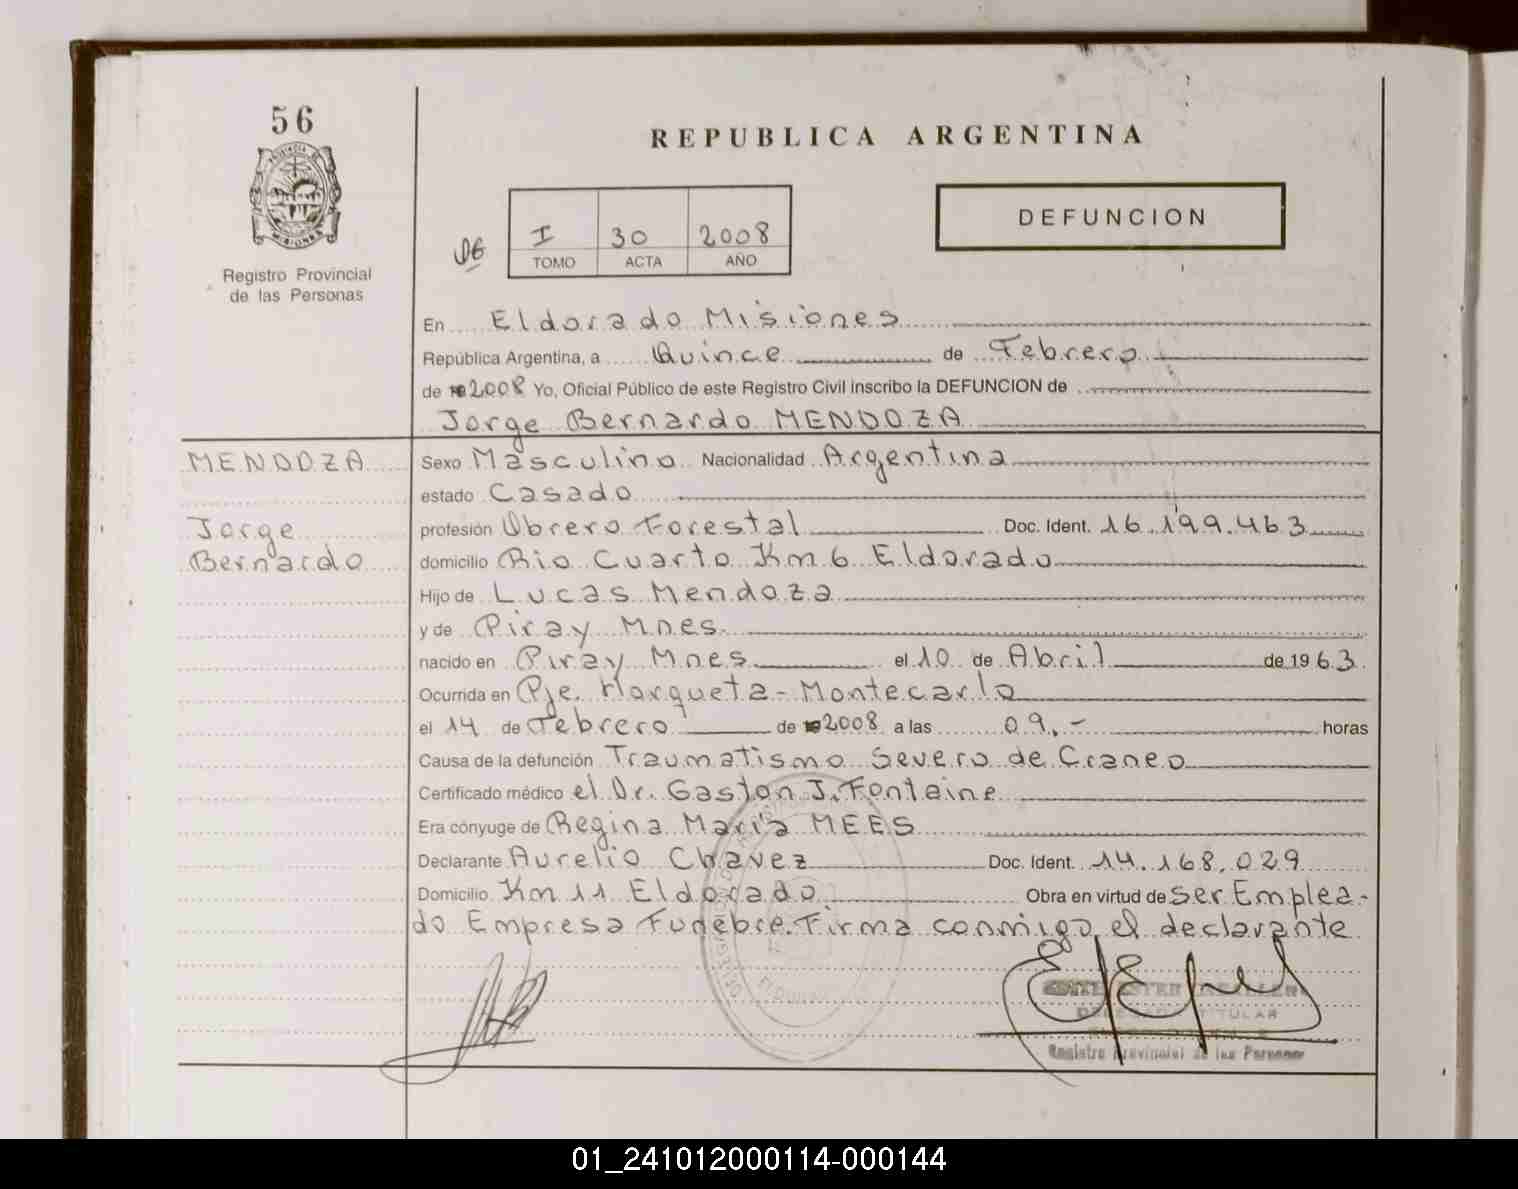 56
REPUBLICA ARGENTINA
PROVINCIA DE
MISIONES
Registro Provincial
de las Personas
I 30 2008
TOMO ACTA AÑO
DEFUNCION
En Eldorado Misiones
República Argentina, a Quince de Febrero
de 2008 Yo, Oficial Público de este Registro Civil inscribo la DEFUNCION de
Jorge Bernardo MENDOZA
MENDOZA
Jorge
Bernardo
Sexo Masculino Nacionalidad Argentina
estado Casado
profesión Obrero Forestal Doc. Ident. 16.199.463
domicilio Rio Cuarto Km 6 Eldorado
Hijo de Lucas Mendoza
y de Piray Mnes.
nacido en Piray Mnes el 10 de Abril de 1963
Ocurrida en Pje. Horqueta - Montecarlo
el 14 de Febrero de 2008 a las 09.- horas
Causa de la defunción Traumatismo Severo de Craneo
Certificado médico el Dr. Gaston J. Fontaine
Era cónyuge de Regina Maria MEES
Declarante Aurelio Chavez Doc. Ident. 14.168.029
Domicilio Km 11 Eldorado Obra en virtud de ser Emplea-
do Empresa Funebre. Firma conmigo el declarante
TITULAR
Registro Provincial de las Personas
01_241012000114-000144